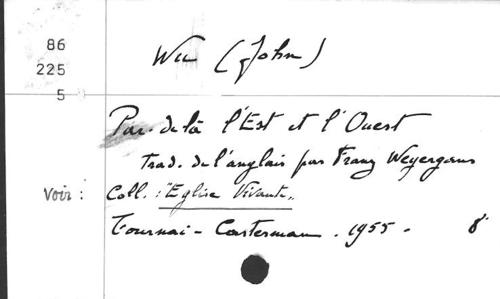 86
225
5
Wu (John)
Par-delà l'Est et l'Ouest
trad. de l'anglais par Franz Weyergans
Voir : Coll. : "Eglise Vivante"
Tournai - Casterman . 1955 . 8°